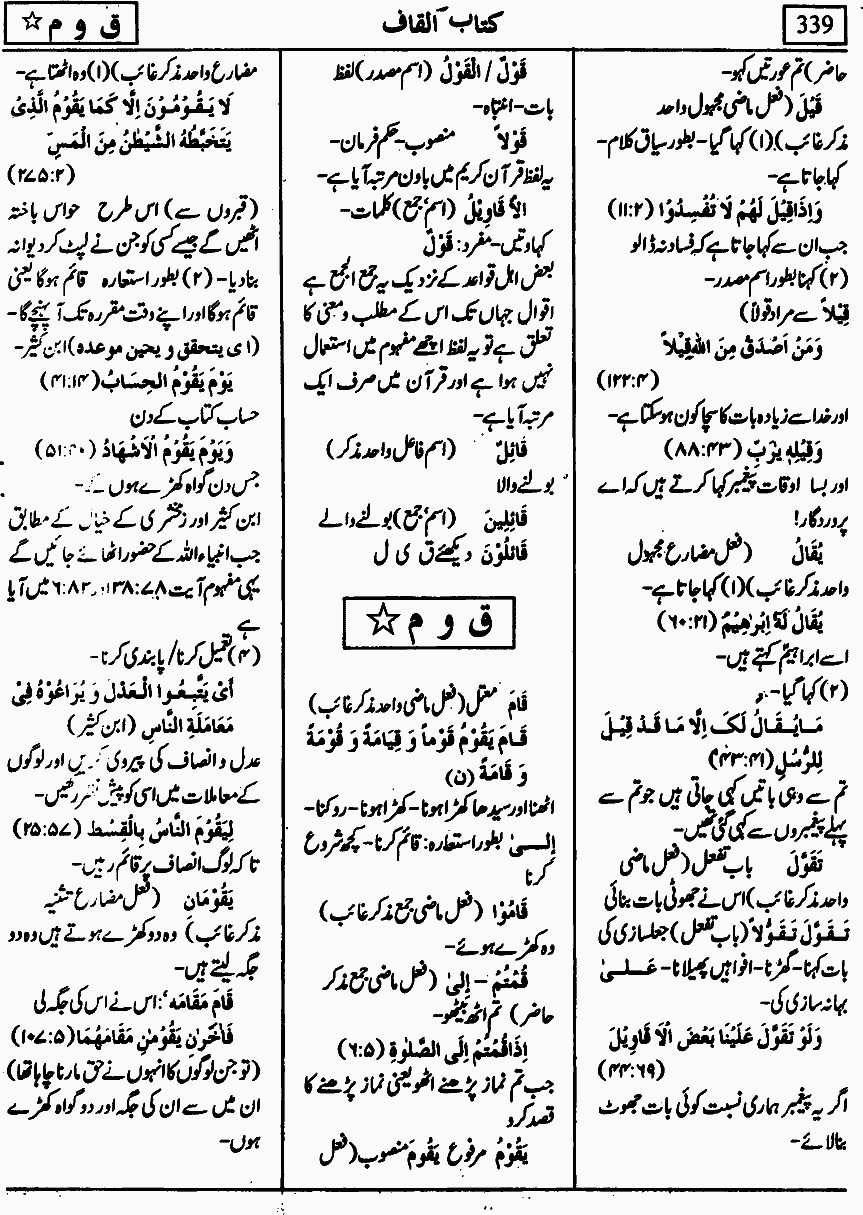 339
کتاب القاف
ق و م ☆
حاضر) تم عورتیں کہو-
قِیْلَ (فعل ماضی مجہول واحد
مذکر غائب) (۱) کہا گیا- بطور سیاق کلام-
کہا جاتا ہے-
وَاِذَاقِیْلَ لَهُمْ لَا تُفْسِدُوْا (۱۱:۲)
جب ان سے کہا جاتا ہے کہ فساد نہ ڈالو
(۲) کہنا بطور اسم مصدر-
قِیْلاً سے مراد قولاً)
وَمَنْ اَصْدَقُ مِنَ اللهِ قِیْلاً
(۱۲۲:۴)
اور خدا سے زیادہ بات کا سچا کون ہوسکتا ہے-
وَقِیْلِهٖ یٰرَبِّ (۸۸:۴۳)
اور بسا اوقات پیغمبر کہا کرتے ہیں کہ اے
پروردگار!
یُقَالُ (فعل مضارع مجہول
واحد مذکر غائب) (۱) کہا جاتا ہے-
یُقَالُ لَهٗ اِبْرٰهِیْمُ (۶۰:۲۱)
اسے ابراہیم کہتے ہیں-
(۲) کہا گیا-
مَا یُقَالُ لَکَ اِلَّا مَا قَدْ قِیْلَ
لِلرُّسُلِ (۴۳:۴۱)
تم سے وہی باتیں کہی جاتی ہیں جو تم سے
پہلے پیغمبروں سے کہی گئی تھیں-
تَقَوَّلَ باب تفعل (فعل ماضی
واحد مذکر غائب) اس نے جھوٹی بات بنائی
تَقَوَّلَ تَقَوُّلاً (باب تفعل) جعلسازی کی
بات کہنا- گھڑنا- افواہیں پھیلانا- عَلٰی
بہانہ سازی کی-
وَلَوْ تَقَوَّلَ عَلَیْنَا بَعْضَ الْاَقَاوِیْلَ
(۴۴:۶۹)
اگر یہ پیغمبر ہماری نسبت کوئی بات جھوٹ
بنالائے-
قَوْلٌ / اَلْقَوْلُ (اسم مصدر) لفظ
بات- انتباہ-
قَوْلاً منصوب- حکم فرمان-
یہ لفظ قرآن کریم میں باون مرتبہ آیا ہے-
اَلاَقَاوِیْلُ (اسم جمع) کلمات-
کہاوتیں- مفرد: قَوْلٌ
بعض اہل قواعد کے نزدیک یہ جمع الجمع ہے
اقوال جہاں تک اس کے مطلب و معنی کا
تعلق ہے تو یہ لفظ اچھے مفہوم میں استعمال
نہیں ہوا ہے اور قرآن میں صرف ایک
مرتبہ آیا ہے-
قَائِلٌ (اسم فاعل واحد مذکر)
بولنے والا
قَائِلِیْنَ (اسم جمع) بولنے والے
قَائِلُوْنَ دیکھئے ق ی ل
ق و م ☆
قَامَ معتل (فعل ماضی واحد مذکر غائب)
قَامَ یَقُوْمُ قَوْماً وَ قِیَامَةً وَ قُوْمَةً
وَ قَامَةً (ن)
اٹھنا اور سیدھا کھڑا ہونا- کھڑا ہونا- روکنا-
اِلٰی بطور استعارہ: قائم کرنا- کچھ شروع
کرنا
قَامُوْا (فعل ماضی جمع مذکر غائب)
وہ کھڑے ہوئے-
قُمْتُمْ – اِلیٰ (فعل ماضی جمع مذکر
حاضر) تم اٹھ بیٹھو-
اِذَاقُمْتُمْ اِلَی الصَّلٰوةِ (۶:۵)
جب تم نماز پڑھنے اٹھو یعنی نماز پڑھنے کا
قصد کرو
یَقُوْمُ مرفوع یَقُوْمَ منصوب (فعل
مضارع واحد مذکر غائب) (۱) وہ اٹھتا ہے-
لَا یَقُوْمُوْنَ اِلَّا کَمَا یَقُوْمُ الَّذِیْ
یَتَخَبَّطُهُ الشَّیْطٰنُ مِنَ الْمَسِّ
(۲۷۵:۲)
(قبروں سے) اس طرح حواس باختہ
اٹھیں گے جیسے کسی کو جن نے لپٹ کر دیوانہ
بنا دیا- (۲) بطور استعارہ قائم ہوگا یعنی
قائم ہوگا اور اپنے وقت مقررہ تک آ پہنچے گا-
(ای یتحقق و یحین موعدہ) ابن کثیر-
یَوْمَ یَقُوْمُ الْحِسَابُ (۴۱:۱۴)
حساب کتاب کے دن
وَیَوْمَ یَقُوْمُ الْاَشْهَادُ (۵۱:۴۰)
جس دن گواہ کھڑے ہوں گے-
ابن کثیر اور زمخشری کے خیال کے مطابق
جب انبیاء اللہ کے حضور اٹھائے جائیں گے
یہی مفہوم آیت ۳۸:۷۸ ۶:۸۳ میں آیا
ہے
(۴) تعمیل کرنا/ پابندی کرنا-
اَیْ یَتَّبِعُوا الْعَدْلَ وَ یُرَاعُوْهُ فِیْ
مُعَامَلَةِ النَّاسِ (ابن کثیر)
عدل و انصاف کی پیروی کریں اور لوگوں
کے معاملات میں اسی کو پیش نظر رکھیں-
لِیَقُوْمَ النَّاسُ بِالْقِسْطِ (۲۵:۵۷)
تا کہ لوگ انصاف پر قائم رہیں-
یَقُوْمَانِ (فعل مضارع تثنیہ
مذکر غائب) وہ دو کھڑے ہوتے ہیں وہ دو
جگہ لیتے ہیں-
قَامَ مَقَامَهٗ: اس نے اس کی جگہ لی
فَاٰخَرٰنِ یَقُوْمٰنِ مَقَامَهُمَا (۱۰۷:۵)
(تو جن لوگوں کا انہوں نے حق مارنا چاہا تھا)
ان میں سے ان کی جگہ اور دو گواہ کھڑے
ہوں-